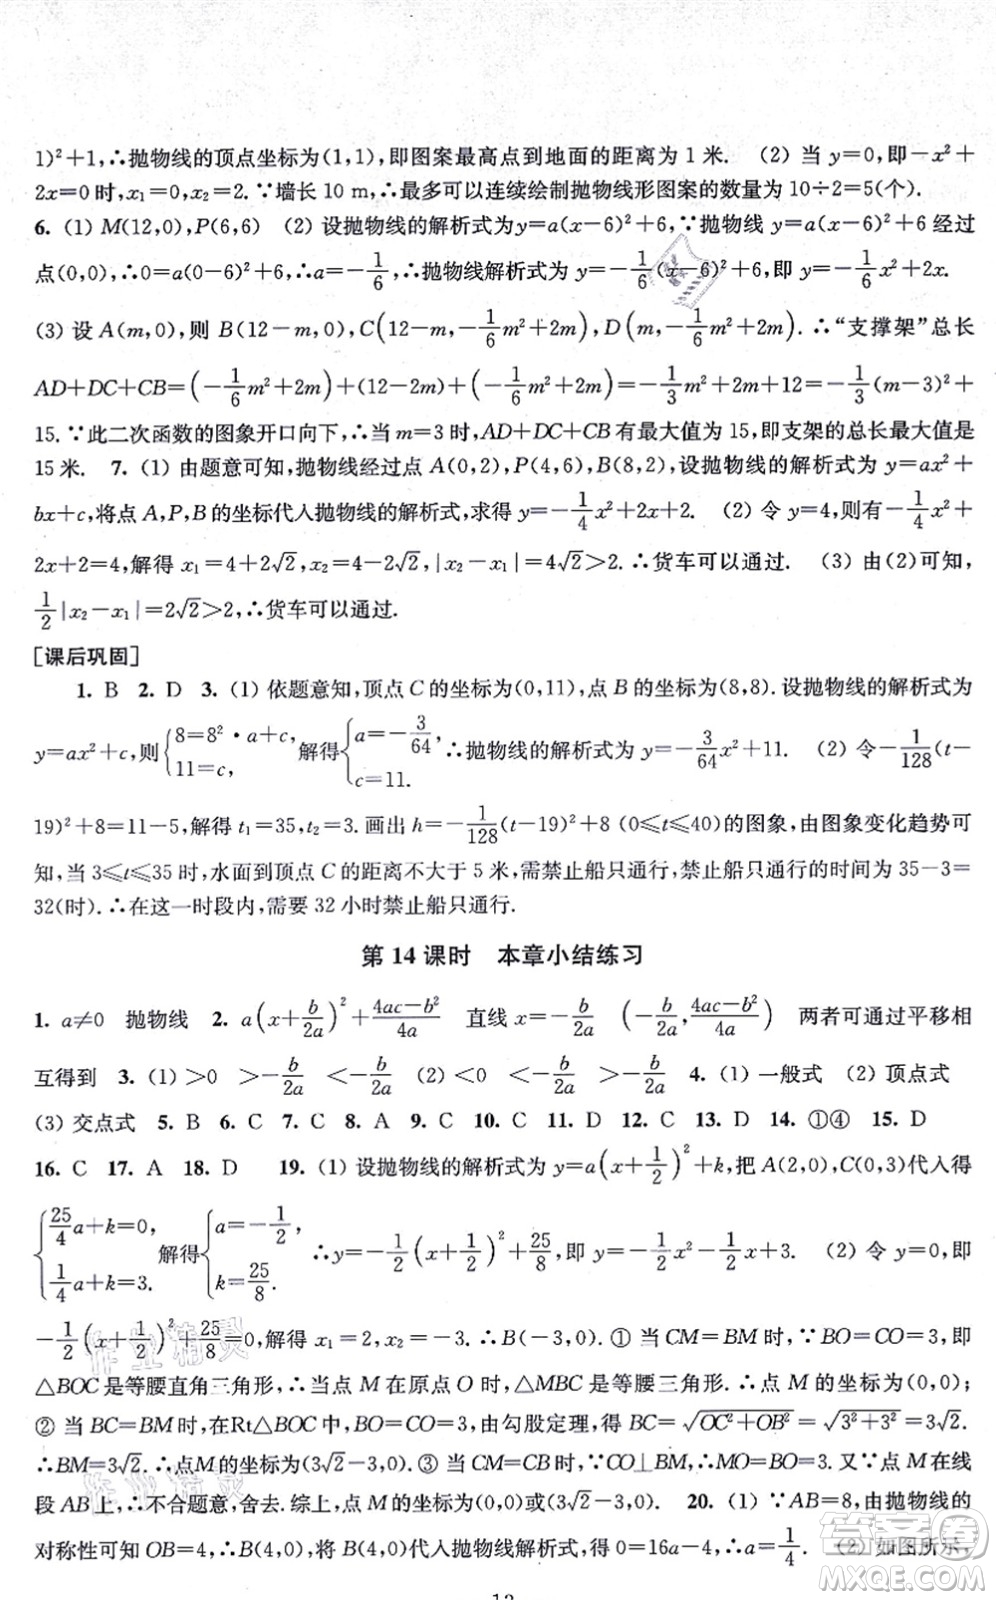 1)²+1,∴抛物线的顶点坐标为(1,1),即图案最高点到地面的距离为 1 米. (2) 当 y=0,即-x²+
2x=0 时,x₁=0,x₂=2.∵墙长 10 m,∴最多可以连续绘制抛物线形图案的数量为 10÷2=5(个).
6. (1) M(12,0),P(6,6) (2) 设抛物线的解析式为 y=a(x-6)²+6,∵抛物线 y=a(x-6)²+6 经过
点(0,0),∴0=a(0-6)²+6,∴a=-1/6,∴抛物线解析式为 y=-1/6(x-6)²+6,即 y=-1/6x²+2x.
(3) 设 A(m,0),则 B(12-m,0),C(12-m,-1/6m²+2m),D(m,-1/6m²+2m).∴“支撑架”总长
AD+DC+CB=(-1/6m²+2m)+(12-2m)+(-1/6m²+2m)=-1/3m²+2m+12=-1/3(m-3)²+
15.∵此二次函数的图象开口向下,∴当 m=3 时,AD+DC+CB 有最大值为 15,即支架的总长最大值是
15 米. 7. (1) 由题意可知,抛物线经过点 A(0,2),P(4,6),B(8,2),设抛物线的解析式为 y=ax²+
bx+c,将点 A,P,B 的坐标代入抛物线的解析式,求得 y=-1/4x²+2x+2. (2) 令 y=4,则有-1/4x²+
2x+2=4,解得 x₁=4+2√2,x₂=4-2√2,|x₂-x₁|=4√2>2.∴货车可以通过. (3) 由(2)可知,
1/2|x₂-x₁|=2√2>2,∴货车可以通过.
[课后巩固]
1. B 2. D 3. (1) 依题意知,顶点 C 的坐标为(0,11),点 B 的坐标为(8,8).设抛物线的解析式为
y=ax²+c,则{8=8²·a+c, 11=c, 解得{a=-3/64, c=11. ∴抛物线的解析式为 y=-3/64x²+11. (2) 令-1/128(t-
19)²+8=11-5,解得 t₁=35,t₂=3.画出 h=-1/128(t-19)²+8 (0⩽t⩽40)的图象,由图象变化趋势可
知,当 3⩽t⩽35 时,水面到顶点 C 的距离不大于 5 米,需禁止船只通行,禁止船只通行的时间为 35-3=
32(时).∴在这一时段内,需要 32 小时禁止船只通行.
第 14 课时 本章小结练习
1. a≠0 抛物线 2. a(x+b/2a)²+(4ac-b²)/4a 直线 x=-b/2a (-b/2a,(4ac-b²)/4a) 两者可通过平移相
互得到 3. (1) >0 >-b/2a <-b/2a (2) <0 <-b/2a >-b/2a 4. (1) 一般式 (2) 顶点式
(3) 交点式 5. B 6. C 7. C 8. A 9. C 10. C 11. D 12. C 13. D 14. ①④ 15. D
16. C 17. A 18. D 19. (1) 设抛物线的解析式为 y=a(x+1/2)²+k,把 A(2,0),C(0,3)代入得
{25/4a+k=0, 1/4a+k=3. 解得{a=-1/2, k=25/8. ∴y=-1/2(x+1/2)²+25/8,即 y=-1/2x²-1/2x+3. (2) 令 y=0,即
-1/2(x+1/2)²+25/8=0,解得 x₁=2,x₂=-3.∴B(-3,0).① 当 CM=BM 时,∵BO=CO=3,即
△BOC 是等腰直角三角形,∴当点 M 在原点 O 时,△MBC 是等腰三角形,∴点 M 的坐标为(0,0);
② 当 BC=BM 时,在Rt△BOC 中,BO=CO=3,由勾股定理,得 BC=√(OC²+OB²)=√(3²+3²)=3√2.
∴BM=3√2.∴点M 的坐标为(3√2-3,0).③ 当 CM=BC 时,∵CO⊥BM,∴MO=BO=3.又∵M 在线
段 AB 上,∴不合题意,舍去.综上,点 M 的坐标为(0,0)或(3√2-3,0). 20. (1) ∵AB=8,由抛物线的
对称性可知 OB=4,∴B(4,0).将 B(4,0)代入抛物线函数解析式,得 0=16a-4,∴a=1/4. (2) 如图所示,
13
作业精灵
作业精灵
答案圈
MXQE.COM